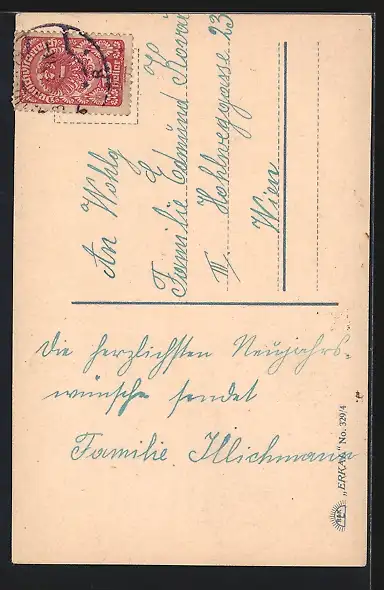 An Wohlg
Familie Edmund Kovař
III Hohlweggasse 23
Wien
Die herzlichsten Neujahrs
wünsche sendet
Familie Illichmann
„ERKAL" No. 329/4